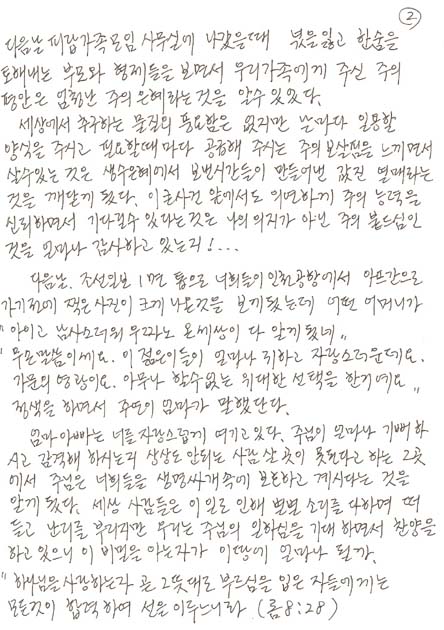 ②
다음날 피랍가족모임 사무실에 나갔을때 넋을잃고 한숨을
토해내는 부모와 형제들을 보면서 우리가족에게 주신 주의
평안은 엄청난 주의 은혜라는것을 알수 있었다.
세상에서 추구하는 물질의 풍요함은 없지만 날마다 일용할
양식을 주시고 필요할때 마다 공급해 주시는 주의 보살핌을 느끼면서
살수있는 것은 생수은혜에서 보낸시간들이 만들어낸 값진 열매라는
것을 깨닫게 됐다. 이 큰사건 앞에서도 의연하게 주의 능력을
신뢰하면서 기다릴수 있다는것은 나의 의지가 아닌 주의 붙드심인
것을 얼마나 감사하고 있는지!...
다음날, 조선일보 1면 톱으로 너희들이 인천공항에서 아프간으로
가기전에 찍은사진이 크게 나온것을 보게됐는데 어떤 어머니가
"아이고 남사스러워 우짜노 온세상이 다 알게됐네"
"무슨말씀이세요. 이 젊은이들이 얼마나 귀하고 자랑스러운데요.
가문의 영광이요. 아무나 할수없는 위대한 선택을 한거예요"
정색을 하면서 주연이 엄마가 말했단다.
엄마 아빠는 너를 자랑스럽게 여기고 있다. 주님이 얼마나 기뻐하
시고 감격해 하시는지 상상도 안되는 사람 살 곳이 못된다고 하는 그곳
에서 주님은 너희들을 생명싸개속에 보호하고 계시다는 것을
알게 됐다. 세상 사람들은 이일로 인해 별별 소리를 다하며 떠
들고 난리를 부리지만 우리는 주님의 일하심을 기대하면서 찬양을
하고 있으니 이 비밀을 아는자가 이땅에 얼마나 될까.
"하나님을 사랑하는자 곧 그 뜻대로 부르심을 입은 자들에게는
모든것이 합력하여 선을 이루느니라 (롬8:28)